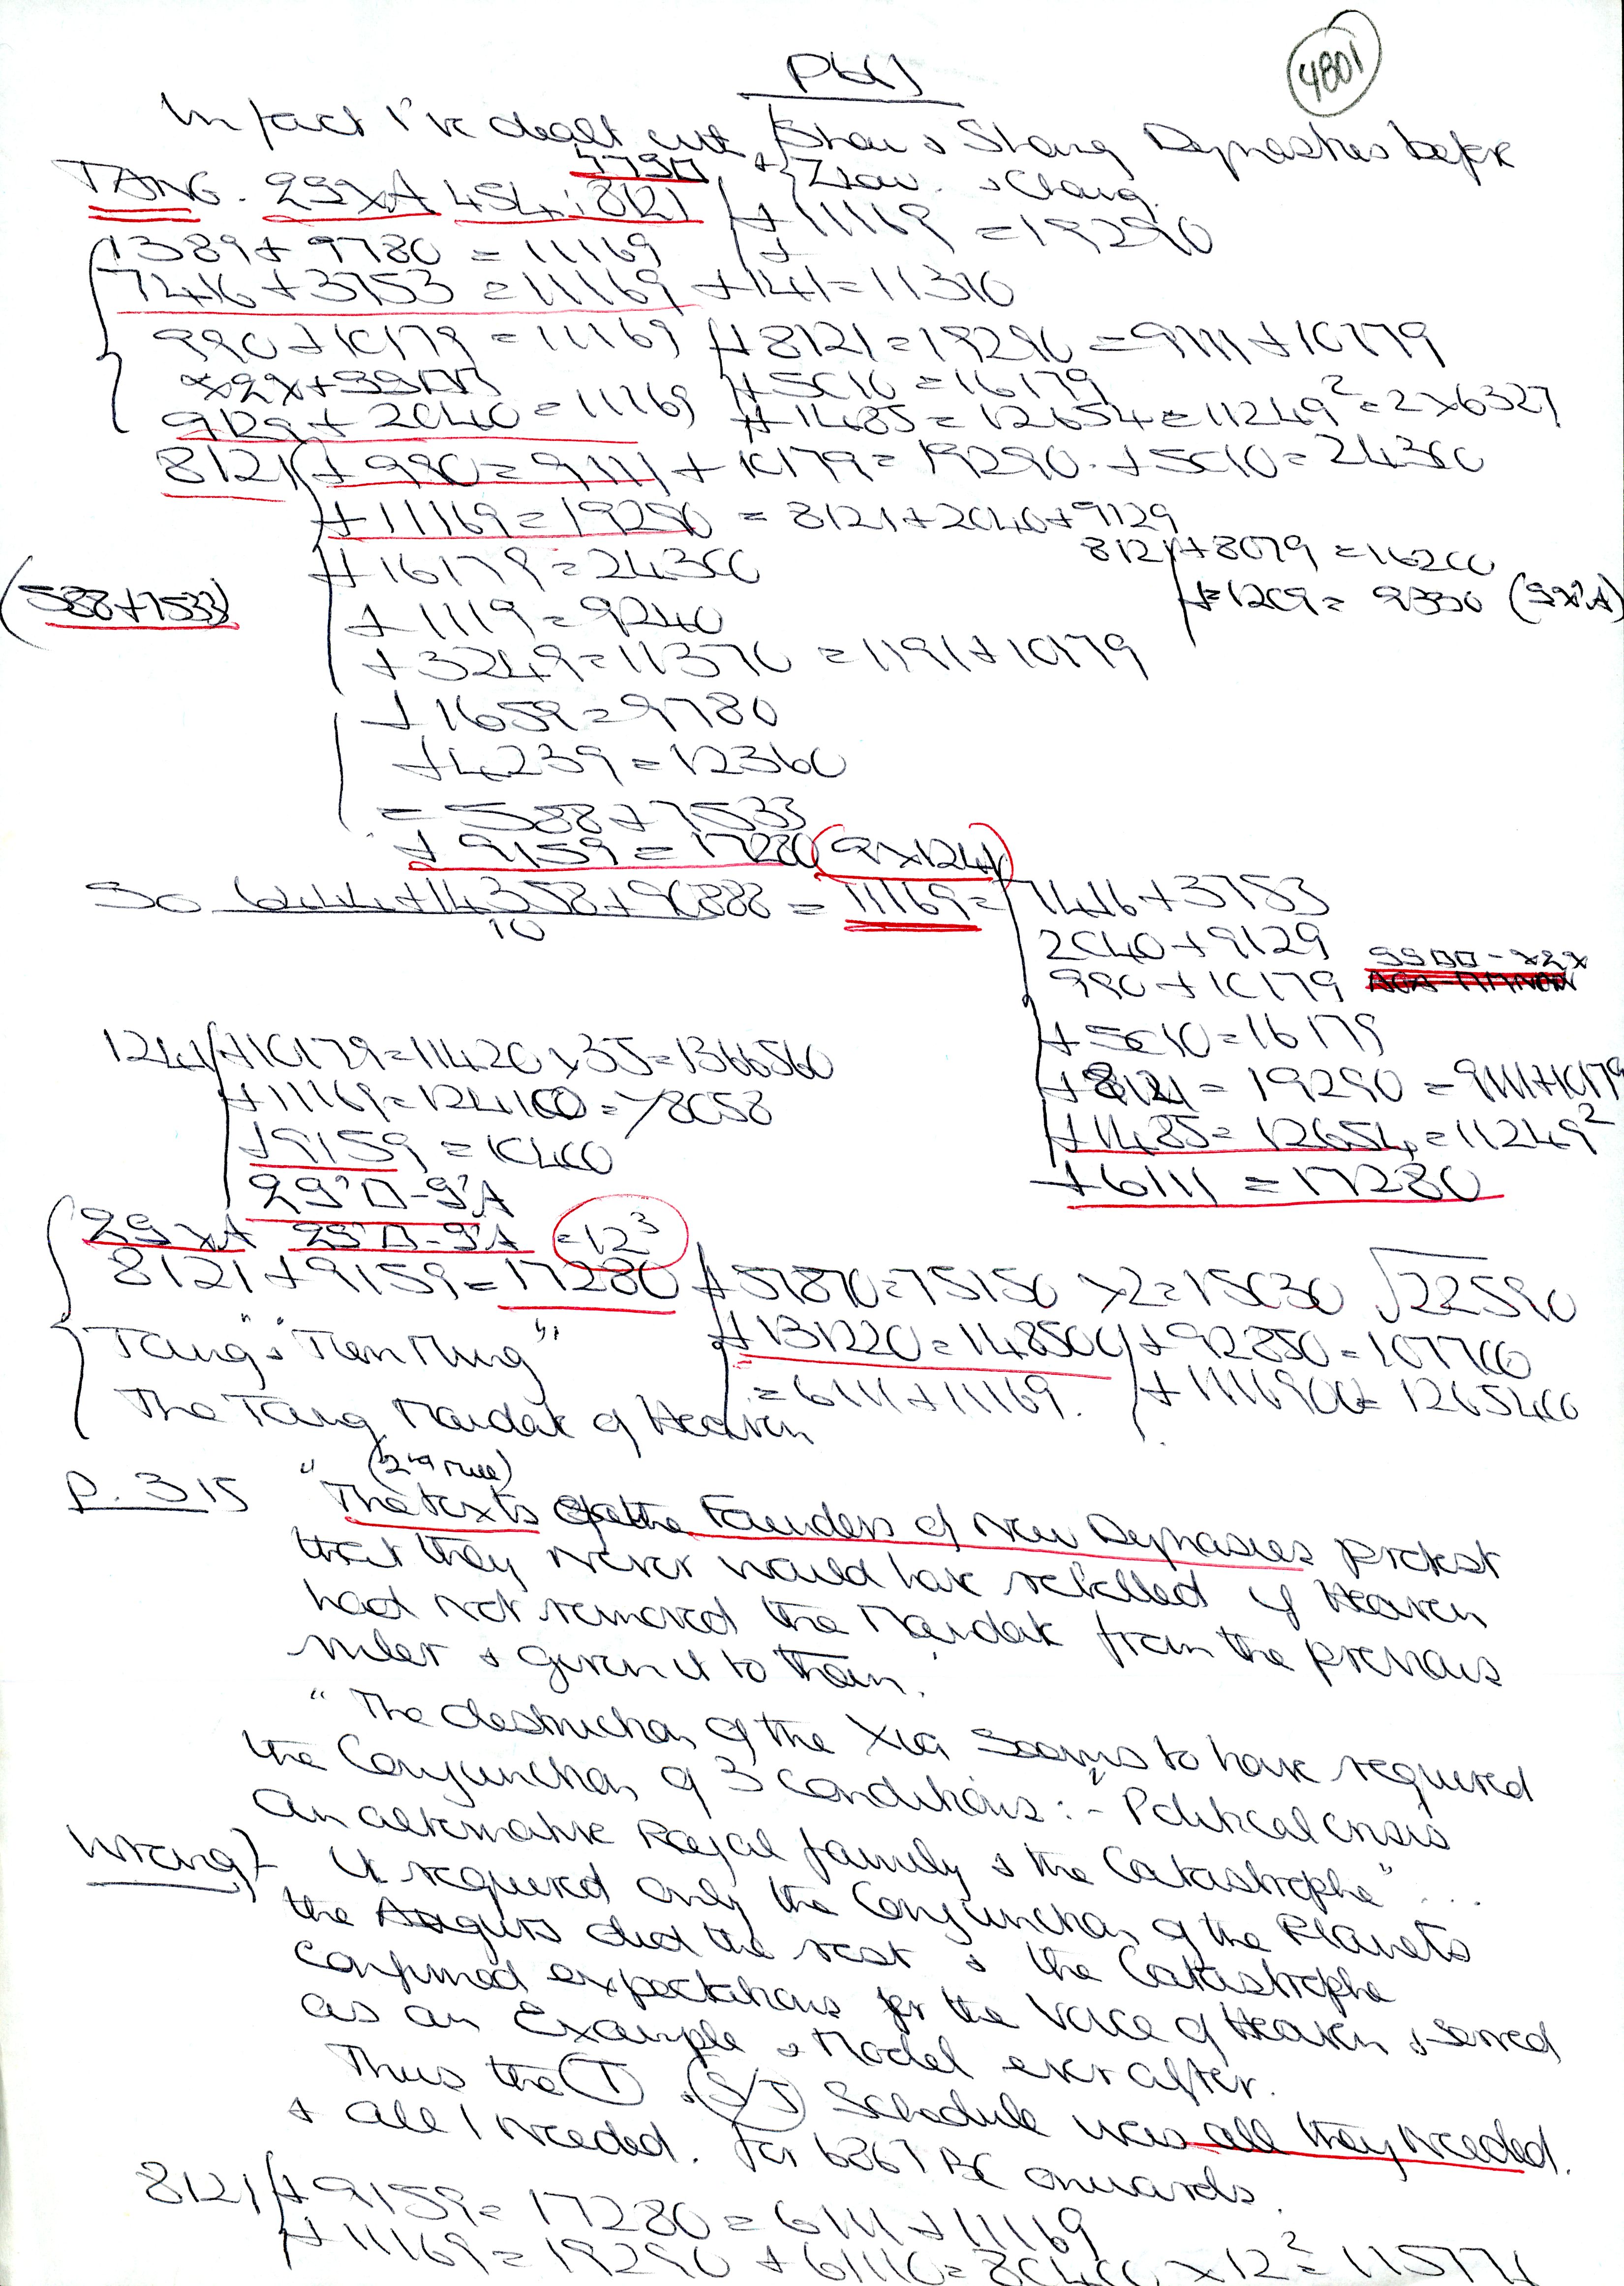 4801
In fact I've dealt with Shau & Shang Dynasties before
Zhou
TANG. 29xA 454 : 8121
+ 11169 = 19290
1389 + 9780 = 11169
7416 + 3753 = 11169 + 141 = 11310
990 + 10179 = 11169 + 8121 = 19290 = 9111 + 10179
+ 5010 = 16179
9129 + 2040 = 11169 + 1485 = 12654 = 11249² = 2 x 6327
8121 + 990 = 9111 + 10179 = 19290 + 5010 = 24300
+ 11169 = 19290 = 8121 + 2040 + 9129
+ 16179 = 24300
8121 + 8079 = 16200
+ 1209 = 9330
(588 + 7533)
+ 1119 = 9240
+ 3249 = 11370 = 1191 + 10179
+ 1659 = 9780
+ 4239 = 12360
= 588 + 7533
+ 9159 = 17280 (9 x 1241)
So 6444 + 14358 + 90888 = 11169 = 7416 + 3753
10
2040 + 9129
990 + 10179
+ 5010 = 16179
1241 + 10179 = 11420 x 35 = 1366560
+ 8121 = 19290 = 9111 + 10179
+ 11169 = 124100 = 78058
+ 1485 = 12654 = 11249²
+ 9159 = 10400
+ 6111 = 17280
= 12³
8121 + 9159 = 17280 + 57870 = 75150 x 2 = 15030 √22590
Tang's "Tien Ming"
+ 131220 = 148500 + 92850 = 107700
= 6111 + 11169. + 1116900 = 1265400
The Tang Mandate of Heaven
P. 315 (2nd rule)
"The texts of the Founders of New Dynasties protest
that they never would have rebelled if Heaven
had not removed the Mandate from the previous
ruler & given it to them.
"The destruction of the Xia seems to have required
the Conjunction of 3 conditions :- Political crisis
An alternative Royal family & the Catastrophe" ...
Wrong? It required only the Conjunction of the Planets
the Augurs did the rest & the Catastrophe
confirmed expectations for the Voice of Heaven & served
as an Example & Model ever after.
Thus the (T) & (S/J) Schedule was all they needed.
& all I needed. For 6867 BC onwards.
8121 + 9159 = 17280 = 6111 + 11169
+ 11169 = 19290 + 61110 = 80400 x 12² =